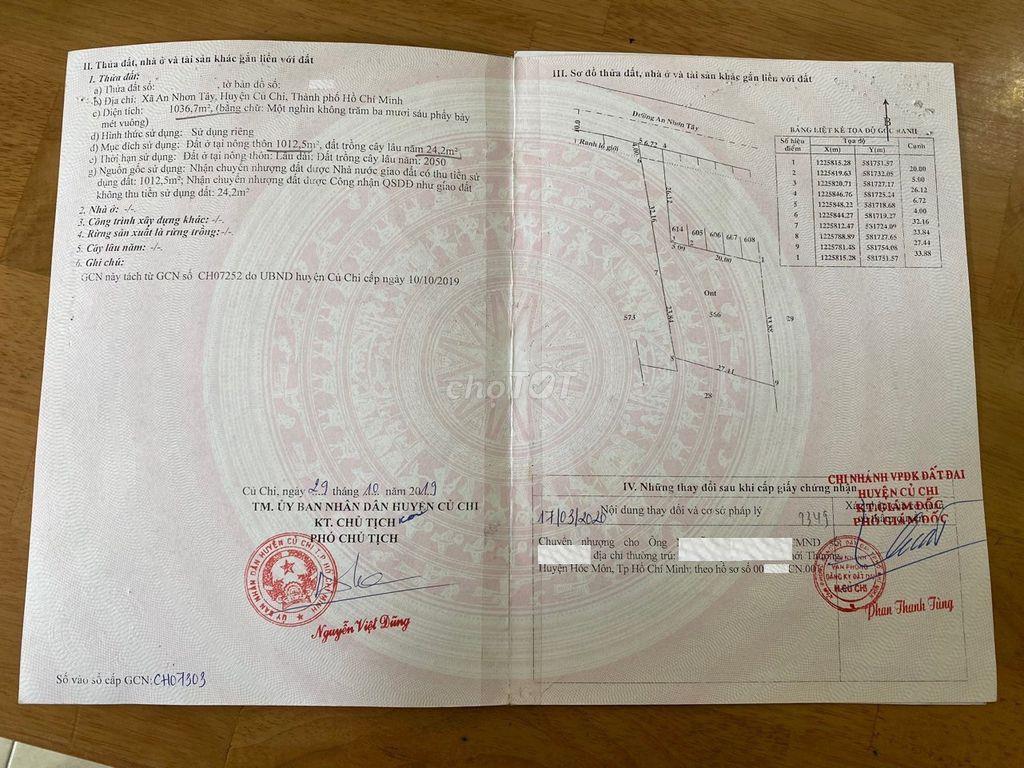 II. Thửa đất, nhà ở và tài sản khác gắn liền với đất
1. Thửa đất:
a) Thửa đất số: , tờ bản đồ số:
b) Địa chỉ: Xã An Nhơn Tây, Huyện Củ Chi, Thành phố Hồ Chí Minh
c) Diện tích: 1036,7m², (bằng chữ: Một nghìn không trăm ba mươi sáu phẩy bảy
mét vuông)
d) Hình thức sử dụng: Sử dụng riêng
đ) Mục đích sử dụng: Đất ở tại nông thôn 1012,5m², đất trồng cây lâu năm 24,2m²
e) Thời hạn sử dụng: Đất ở tại nông thôn: Lâu dài; Đất trồng cây lâu năm: 2050
g) Nguồn gốc sử dụng: Nhận chuyển nhượng đất được Nhà nước giao đất có thu tiền sử
dụng đất: 1012,5m²; Nhận chuyển nhượng đất được Công nhận QSDĐ như giao đất
không thu tiền sử dụng đất: 24,2m²
2. Nhà ở: -/-
3. Công trình xây dựng khác: -/-
4. Rừng sản xuất là rừng trồng: -/-
5. Cây lâu năm: -/-
6. Ghi chú:
GCN này tách từ GCN số CH07252 do UBND huyện Củ Chi cấp ngày 10/10/2019
Củ Chi, ngày 29 tháng 10 năm 2019
TM. ỦY BAN NHÂN DÂN HUYỆN CỦ CHI
KT. CHỦ TỊCH
PHÓ CHỦ TỊCH
ỦY BAN NHÂN DÂN HUYỆN CỦ CHI T.P HỒ CHÍ MINH
Nguyễn Việt Dũng
Số vào sổ cấp GCN: CH07303
III. Sơ đồ thửa đất, nhà ở và tài sản khác gắn liền với đất
Đường An Nhơn Tây
Ranh lộ giới
B
6.72 4
4.00
26.12
32.16
614 605 606 667 608
5.00
20.00
1
7
Ont
566
573
23.84
33.88
29
8
27.44
9
28
BẢNG LIỆT KÊ TỌA ĐỘ GÓC RANH
Số hiệu điểm Tọa độ Cạnh
X(m) Y(m)
1 1225815.28 581751.57
20.00
2 1225819.63 581732.05
5.00
3 1225820.71 581727.17
26.12
4 1225846.76 581725.24
6.72
5 1225848.22 581718.68
4.00
6 1225844.27 581719.27
32.16
7 1225812.47 581724.09
23.84
8 1225788.89 581727.65
27.44
9 1225781.48 581754.08
33.88
1 1225815.28 581751.57
chợTỐT
IV. Những thay đổi sau khi cấp giấy chứng nhận
Nội dung thay đổi và cơ sở pháp lý
17/03/2020
Chuyển nhượng cho Ông
địa chỉ thường trú:
Huyện Hóc Môn, Tp Hồ Chí Minh; theo hồ sơ số
CHI NHÁNH VPĐK ĐẤT ĐAI
HUYỆN CỦ CHI
KT.GIÁM ĐỐC
PHÓ GIÁM ĐỐC
VĂN PHÒNG
ĐĂNG KÝ ĐẤT ĐAI
H.CỦ CHI
Phan Thanh Tùng